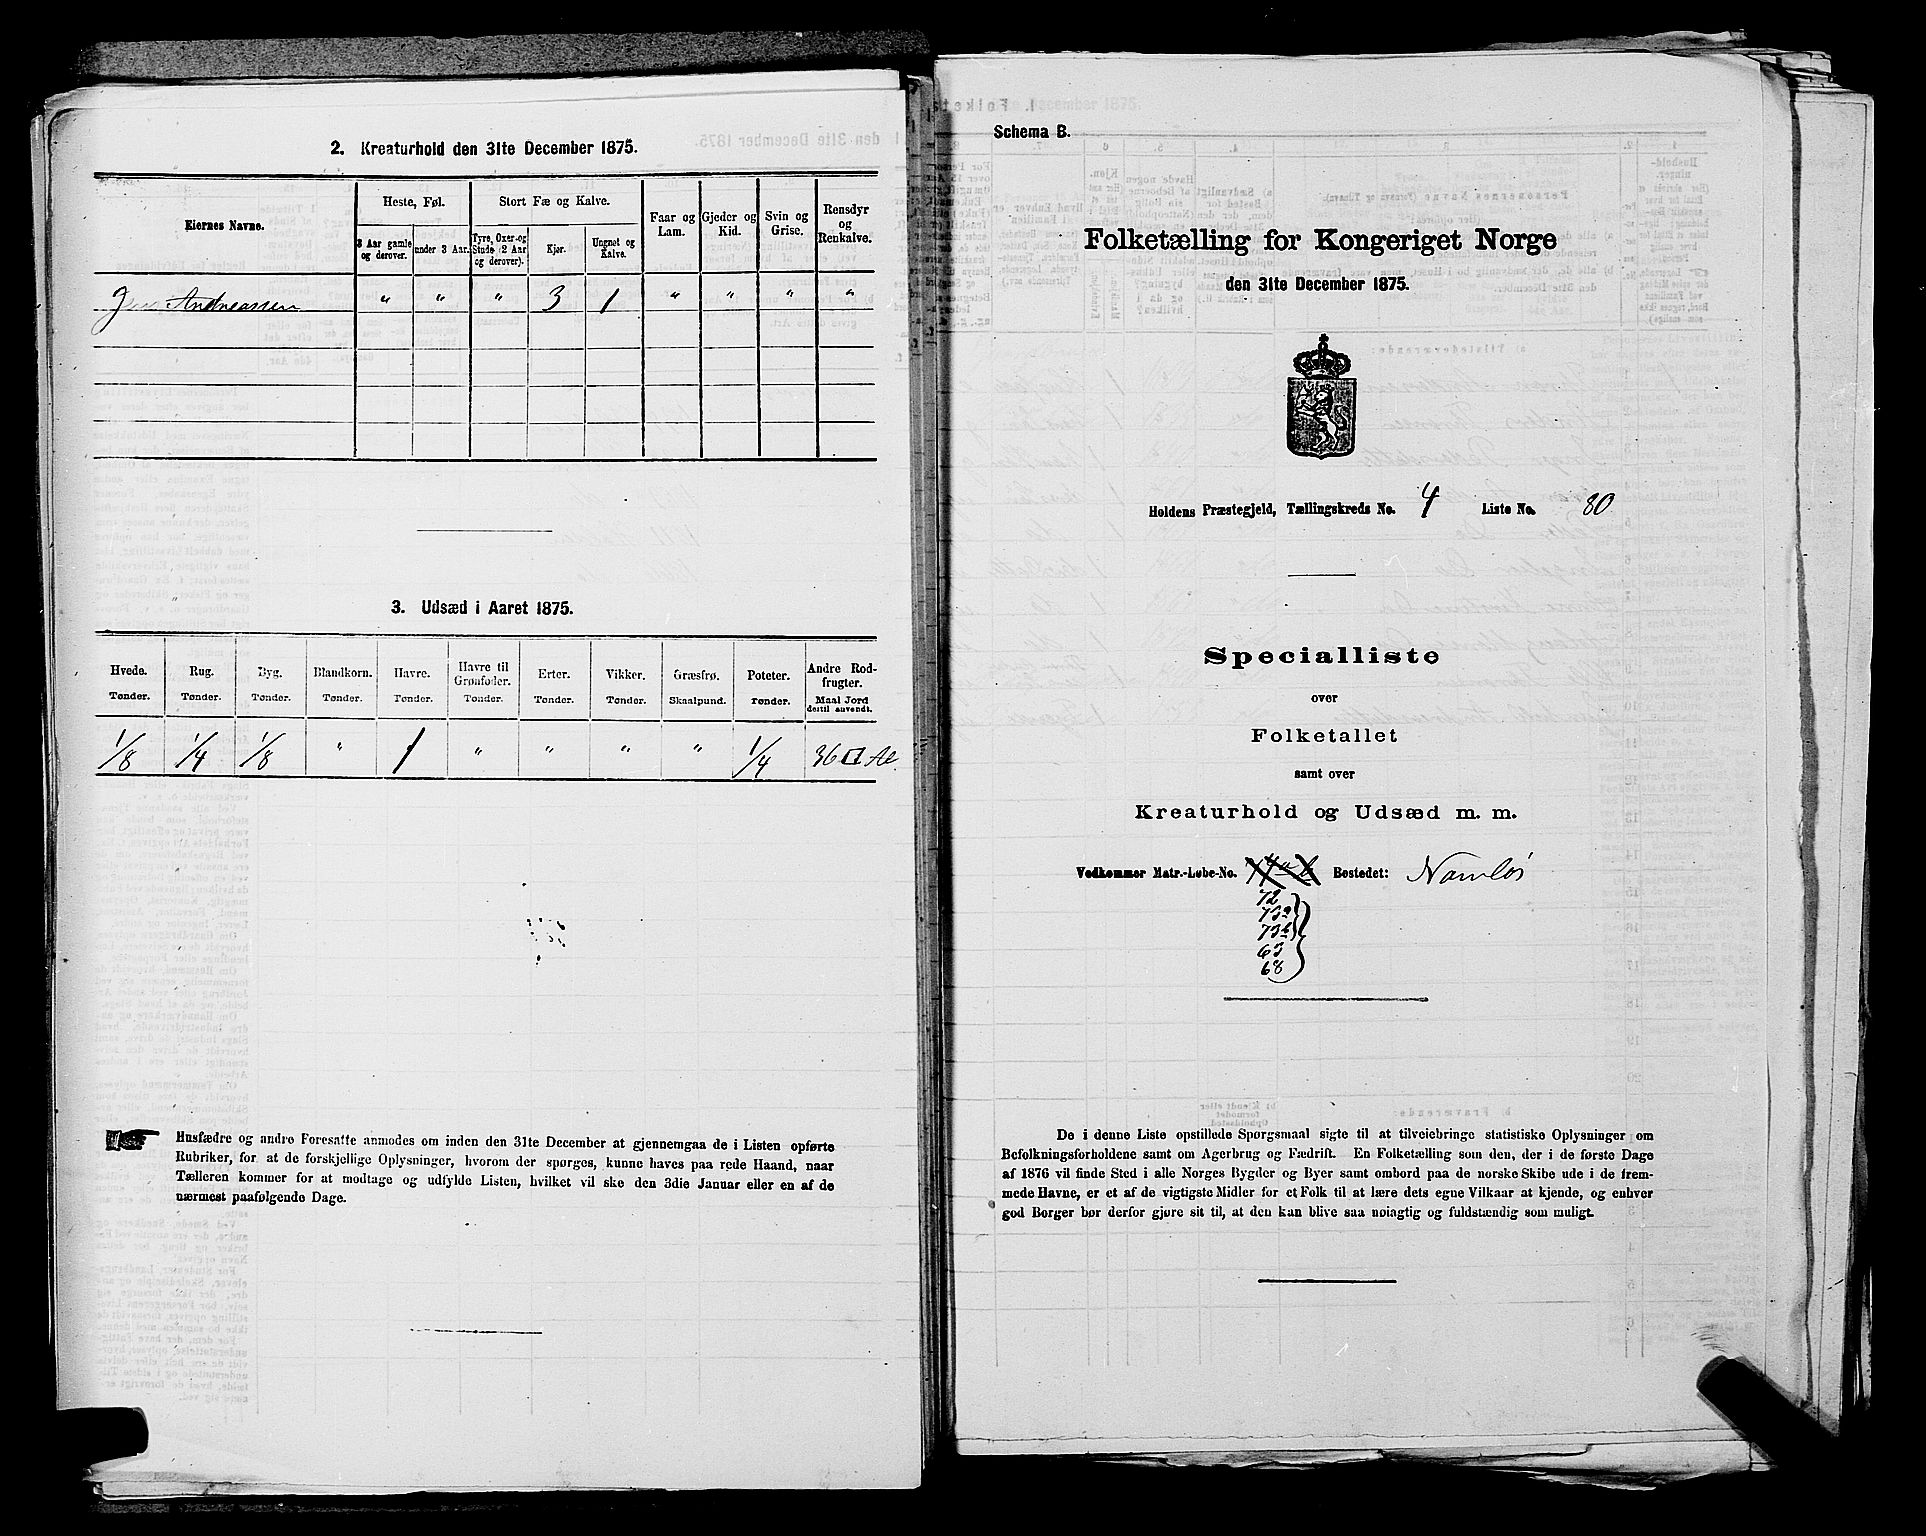 2. Kreaturhold den 31te December 1875.
Eiernes Navne.
Heste, Føl.
Stort Fæ og Kalve.
Faar og Lam.
Gjeder og Kid.
Svin og Grise.
Rensdyr og Renkalve.
3 Aar gamle og derover.
under 3 Aar.
Tyre, Oxer og Stude (2 Aar og derover).
Kjør.
Ungnet og Kalve.
Andreassen " " " 3 1 " " " "
3. Udsæd i Aaret 1875.
Hvede. Rug. Byg. Blandkorn. Havre. Havre til Grønfoder. Erter. Vikker. Græsfrø. Poteter. Andre Rodfrugter.
Tønder. Tønder. Tønder. Tønder. Tønder. Tønder. Tønder. Tønder. Skaalpund. Tønder. Maal Jord dertil anvendt.
1/8 1/4 1/8 " 1 " " " " 1/4 36 □ Al.
Husfædre og andre Foresatte anmodes om inden den 31te December at gjennemgaa de i Listen opførte
Rubriker, for at de forskjellige Oplysninger, hvorom der spørges, kunne haves paa rede Haand, naar
Tælleren kommer for at modtage og udfylde Listen, hvilket vil ske den 3die Januar eller en af de
nærmest paafølgende Dage.
Schema B.
Folketælling for Kongeriget Norge
den 31te December 1875.
Holdens Præstegjeld, Tællingskreds No. 4 Liste No. 80
Specialliste
over
Folketallet
samt over
Kreaturhold og Udsæd m. m.
Vedkommer Matr.-Løbe-No. Bostedet: Namløs
72
73a
73b
63
68
De i denne Liste opstillede Spørgsmaal sigte til at tilveiebringe statistiske Oplysninger om
Befolkningsforholdene samt om Agerbrug og Fædrift. En Folketælling som den, der i de første Dage
af 1876 vil finde Sted i alle Norges Bygder og Byer samt ombord paa de norske Skibe ude i de frem-
mede Havne, er et af de vigtigste Midler for et Folk til at lære dets egne Vilkaar at kjende, og enhver
god Borger bør derfor gjøre sit til, at den kan blive saa nøiagtig og fuldstændig som muligt.